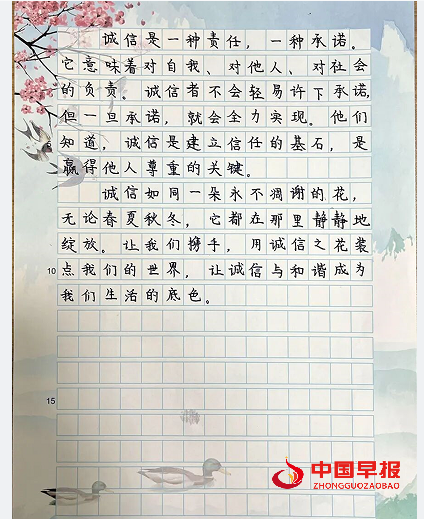 诚信是一种责任，一种承诺。
它意味着对自我、对他人、对社会
的负责。诚信者不会轻易许下承诺，
但一旦承诺，就会全力实现。他们
知道，诚信是建立信任的基石，是
赢得他人尊重的关键。
诚信如同一朵永不凋谢的花，
无论春夏秋冬，它都在那里静静地
绽放。让我们携手，用诚信之花装
10 点我们的世界，让诚信与和谐成为
我们生活的底色。
15
中国早报
ZHONGGUOZAOBAO